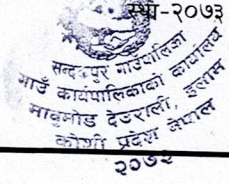 स्था-२०७३
सन्दकपुर गाउँपालिका
गाउँ कार्यपालिकाको कार्यालय
माबुमोड देउराली, इलाम
कोशी प्रदेश नेपाल
२०७३